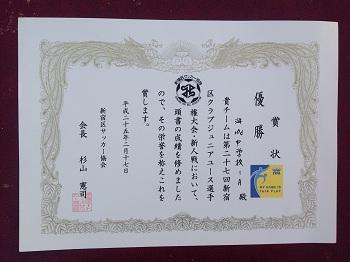 賞状
優勝
海城中学校
殿
貴チームは第二十七回新宿
区クラブジュニアユース選手
権大会・新人戦において、
頭書の成績を修めました
ので、その栄誉を称えこれを
賞します。
平成二十五年二月十七日
新宿区サッカー協会
会長 杉山 憲司
MY GAME IS
FAIR PLAY